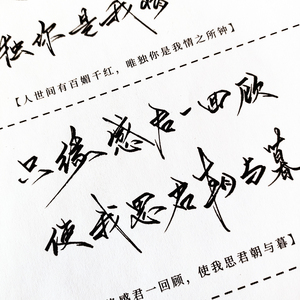 独你是我情
【人世间有百媚千红，唯独你是我情之所钟】
只缘感君一回顾
使我思君朝与暮
感君一回顾，使我思君朝与暮】